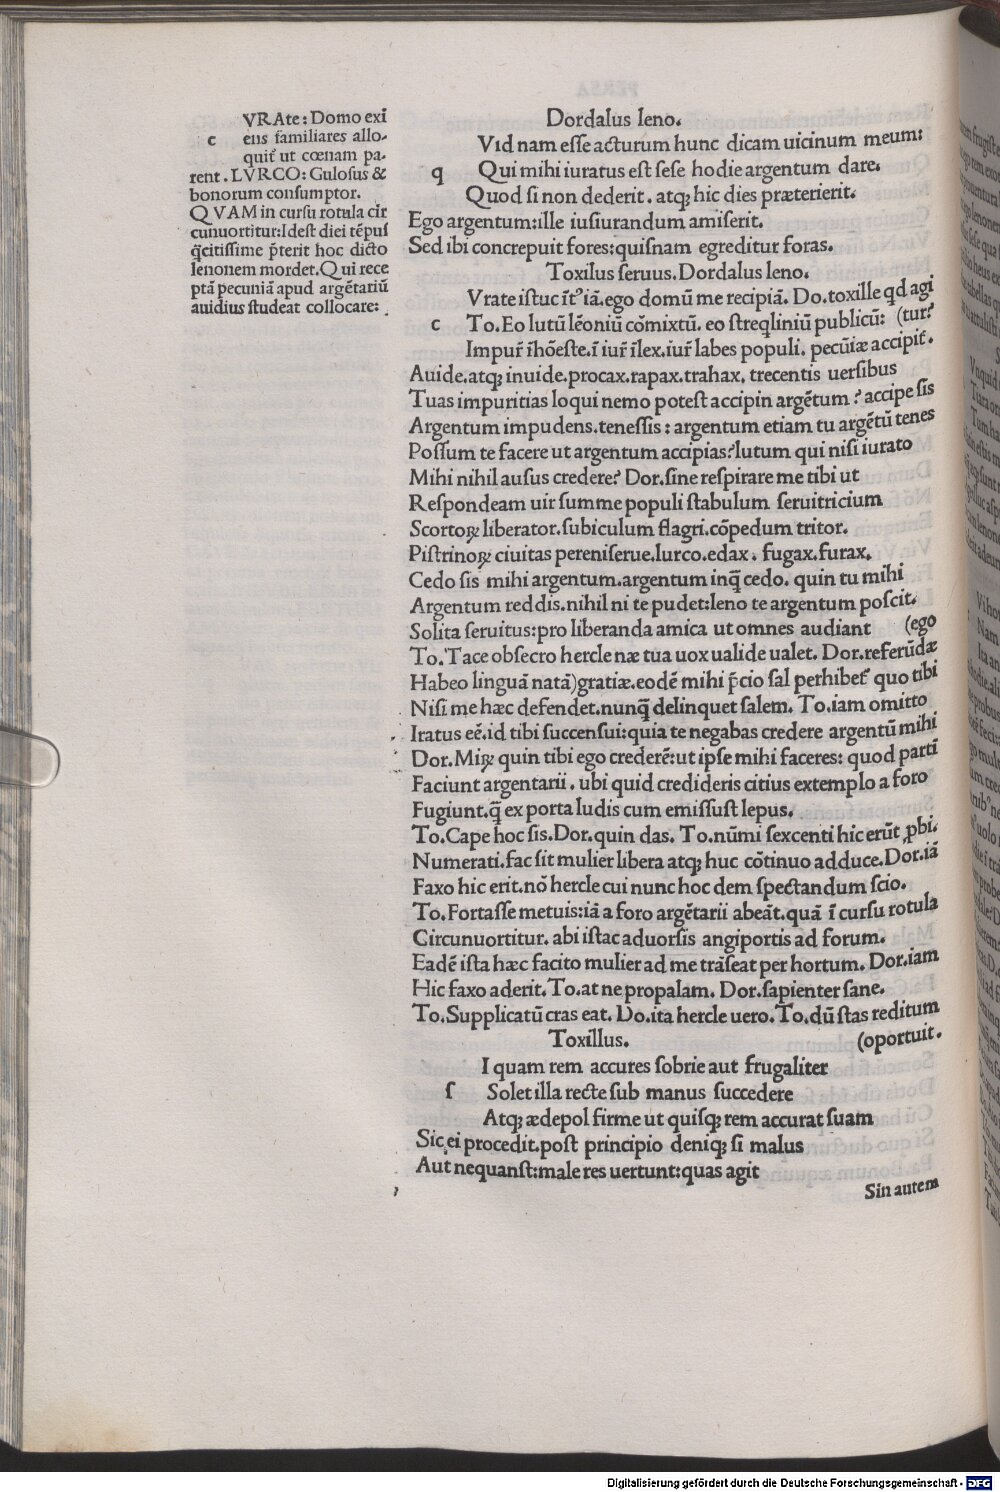 VRAte: Domo exi
c ens familiares allo-
quit̃ ut cœnam pa-
rent. LVRCO: Gulosus &
bonorum consumptor.
QVAM in cursu rotula cir
cunuortitur: Idest diei tẽpus
q̃citissime p̃terit hoc dicto
lenonem mordet. Qui rece
ptã pecuniã apud argẽtariũ
auidius studeat collocare:
Dordalus leno.
Vid nam esse acturum hunc dicam uicinum meum:
q Qui mihi iuratus est sese hodie argentum dare.
Quod si non dederit. atqꝫ hic dies præterierit.
Ego argentum: ille iusiurandum amiserit.
Sed ibi concrepuit fores: quisnam egreditur foras.
Toxilus seruus. Dordalus leno.
Vrate istuc ĩtꝰ iã. ego domũ me recipiã. Do. toxille qd agi
c To. Eo lutũ lẽoniũ cõmixtũ. eo streqliniũ publicũ: (tur?
Impur̃ ĩhõeste. ĩ iur̃ ĩlex. iur̃ labes populi. pecũiæ accipit̃.
Auide. atqꝫ inuide. procax. rapax. trahax. trecentis uersibus
Tuas impuritias loqui nemo potest accipin argẽtum? accipe sis
Argentum impudens. tenessis: argentum etiam tu argẽtũ tenes
Possum te facere ut argentum accipias? lutum qui nisi iurato
Mihi nihil ausus credere? Dor. sine respirare me tibi ut
Respondeam uir summe populi stabulum seruitricium
Scortoꝝ liberator. subiculum flagri. cõpedum tritor.
Pistrinoꝝ ciuitas pereniserue. lurco. edax. fugax. furax.
Cedo sis mihi argentum. argentum inq̃ cedo. quin tu mihi
Argentum reddis. nihil ni te pudet: leno te argentum poscit.
Solita seruitus: pro liberanda amica ut omnes audiant (ego
To. Tace obsecro hercle næ tua uox ualide ualet. Dor. referũdæ
Habeo linguã natã) gratiæ. eodẽ mihi p̃cio sal perhibet̃ quo tibi
Nisi me hæc defendet. nunq̃ delinquet salem. To. iam omitto
Iratus eẽ. id tibi succensui: quia te negabas credere argentũ mihi
Dor. Miꝝ quin tibi ego crederẽ: ut ipse mihi faceres: quod partĩ
Faciunt argentarii. ubi quid credideris citius extemplo a foro
Fugiunt. q̃ ex porta ludis cum emissust lepus.
To. Cape hoc sis. Dor. quin das. To. nũmi sexcenti hic erũt ꝓbi.
Numerati. fac sit mulier libera atqꝫ huc cõtinuo adduce. Dor. iã
Faxo hic erit. nõ hercle cui nunc hoc dem spectandum scio.
To. Fortasse metuis: iã a foro argẽtarii abeãt. quã ĩ cursu rotula
Circunuortitur. abi istac aduorsis angiportis ad forum.
Eadẽ ista hæc facito mulier ad me trãseat per hortum. Dor. iam
Hic faxo aderit. To. at ne propalam. Dor. sapienter sane.
To. Supplicatũ cras eat. Do. ita hercle uero. To. dũ stas reditum
Toxillus. (oportuit.
I quam rem accures sobrie aut frugaliter
s Solet illa recte sub manus succedere
Atqꝫ ædepol firme ut quisqꝫ rem accurat suam
Sic ei procedit. post principio deniqꝫ si malus
Aut nequanst: male res uertunt: quas agit
Sin autem
Digitalisierung gefördert durch die Deutsche Forschungsgemeinschaft - DFG